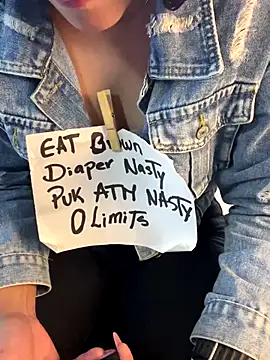 EAT Brown
Diaper Nasty
PUK ATM NASTY
0 Limits